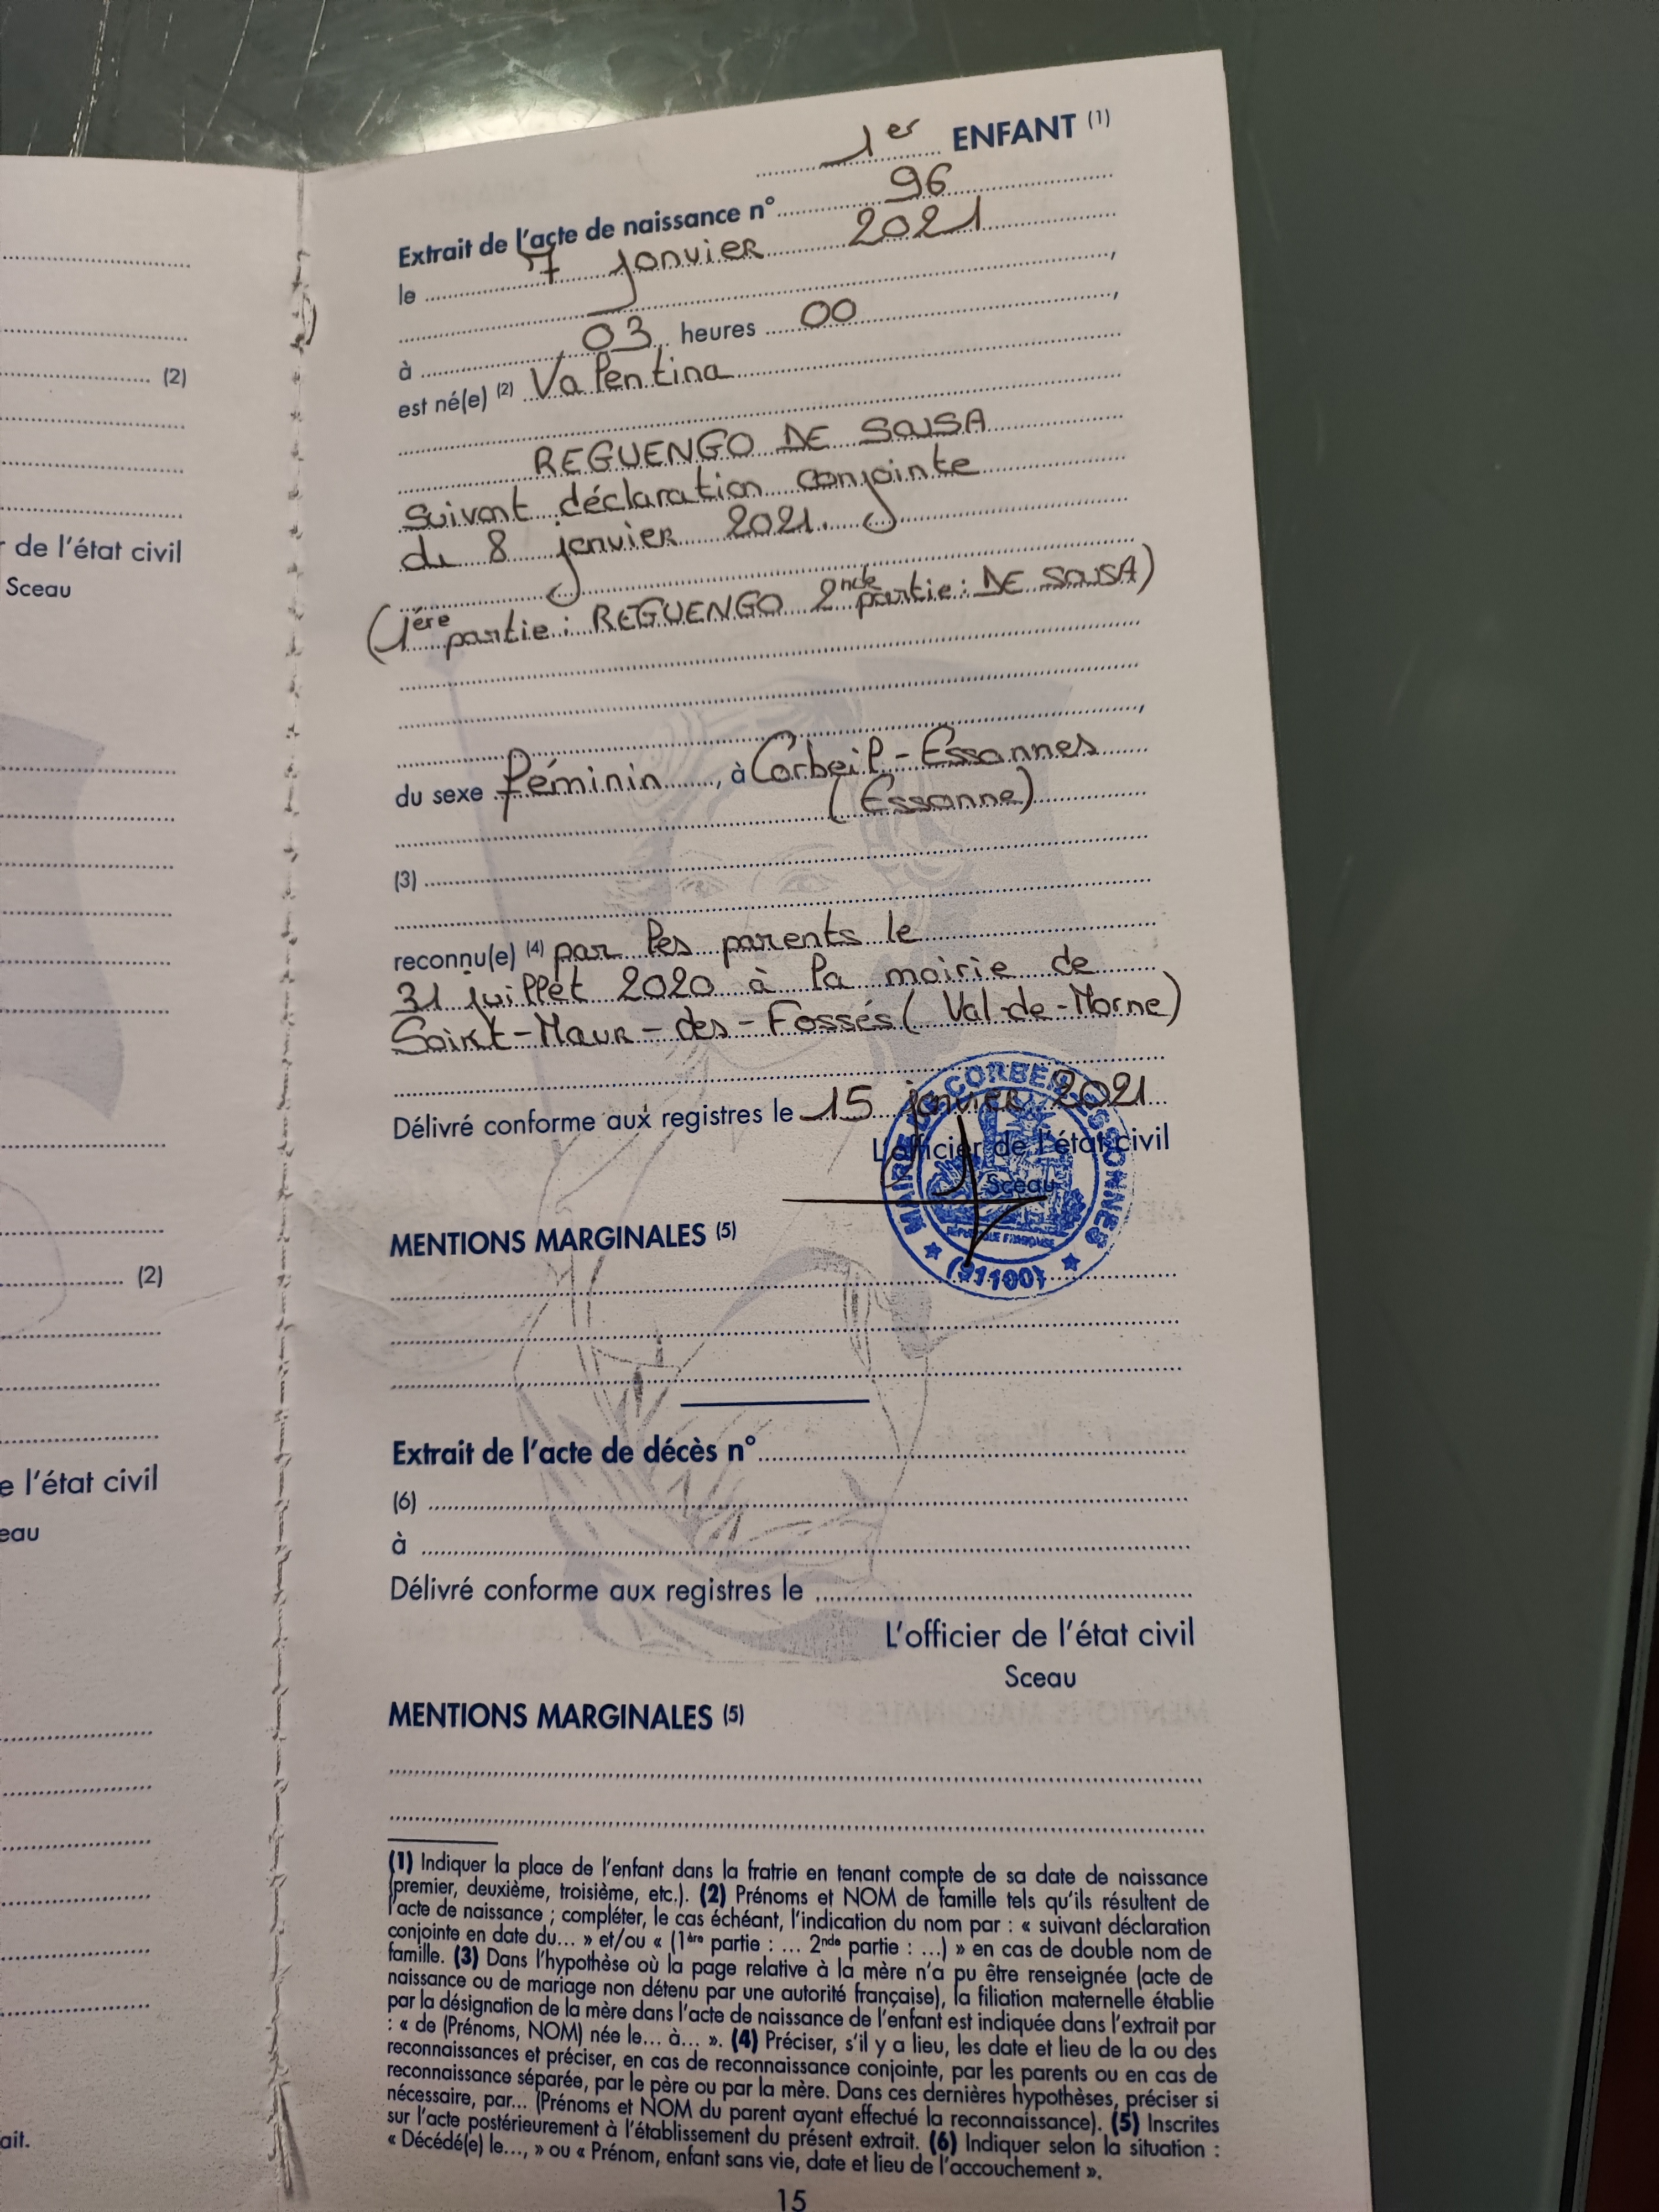 (2)
r de l'état civil
Sceau
(2)
e l'état civil
eau
ait.
1er ENFANT (1)
Extrait de l'acte de naissance n° 96
le 7 janvier 2021
,
à 03 heures 00,
est né(e) (2) Valentina
REGUENGO DE SOUSA
suivant déclaration conjointe
du 8 janvier 2021.
(1ère partie : REGUENGO 2nde partie : DE SOUSA)
,
du sexe féminin, à Corbeil-Essonnes
(Essonne)
(3)
reconnu(e) (4) par les parents le
31 juillet 2020 à la mairie de
Saint-Maur-des-Fossés (Val-de-Marne)
Délivré conforme aux registres le 15 janvier 2021
L'officier de l'état civil
Sceau
MAIRIE CORBEIL ESSONNES
RÉPUBLIQUE FRANÇAISE
(91100)
MENTIONS MARGINALES (5)
Extrait de l'acte de décès n°
(6)
à
Délivré conforme aux registres le
L'officier de l'état civil
Sceau
MENTIONS MARGINALES (5)
(1) Indiquer la place de l'enfant dans la fratrie en tenant compte de sa date de naissance
(premier, deuxième, troisième, etc.). (2) Prénoms et NOM de famille tels qu'ils résultent de
l'acte de naissance ; compléter, le cas échéant, l'indication du nom par : « suivant déclaration
conjointe en date du... » et/ou « (1ère partie : ... 2nde partie : ...) » en cas de double nom de
famille. (3) Dans l'hypothèse où la page relative à la mère n'a pu être renseignée (acte de
naissance ou de mariage non détenu par une autorité française), la filiation maternelle établie
par la désignation de la mère dans l'acte de naissance de l'enfant est indiquée dans l'extrait par
: « de (Prénoms, NOM) née le... à... ». (4) Préciser, s'il y a lieu, les date et lieu de la ou des
reconnaissances et préciser, en cas de reconnaissance conjointe, par les parents ou en cas de
reconnaissance séparée, par le père ou par la mère. Dans ces dernières hypothèses, préciser si
nécessaire, par... (Prénoms et NOM du parent ayant effectué la reconnaissance). (5) Inscrites
sur l'acte postérieurement à l'établissement du présent extrait. (6) Indiquer selon la situation :
« Décédé(e) le..., » ou « Prénom, enfant sans vie, date et lieu de l'accouchement ».
15